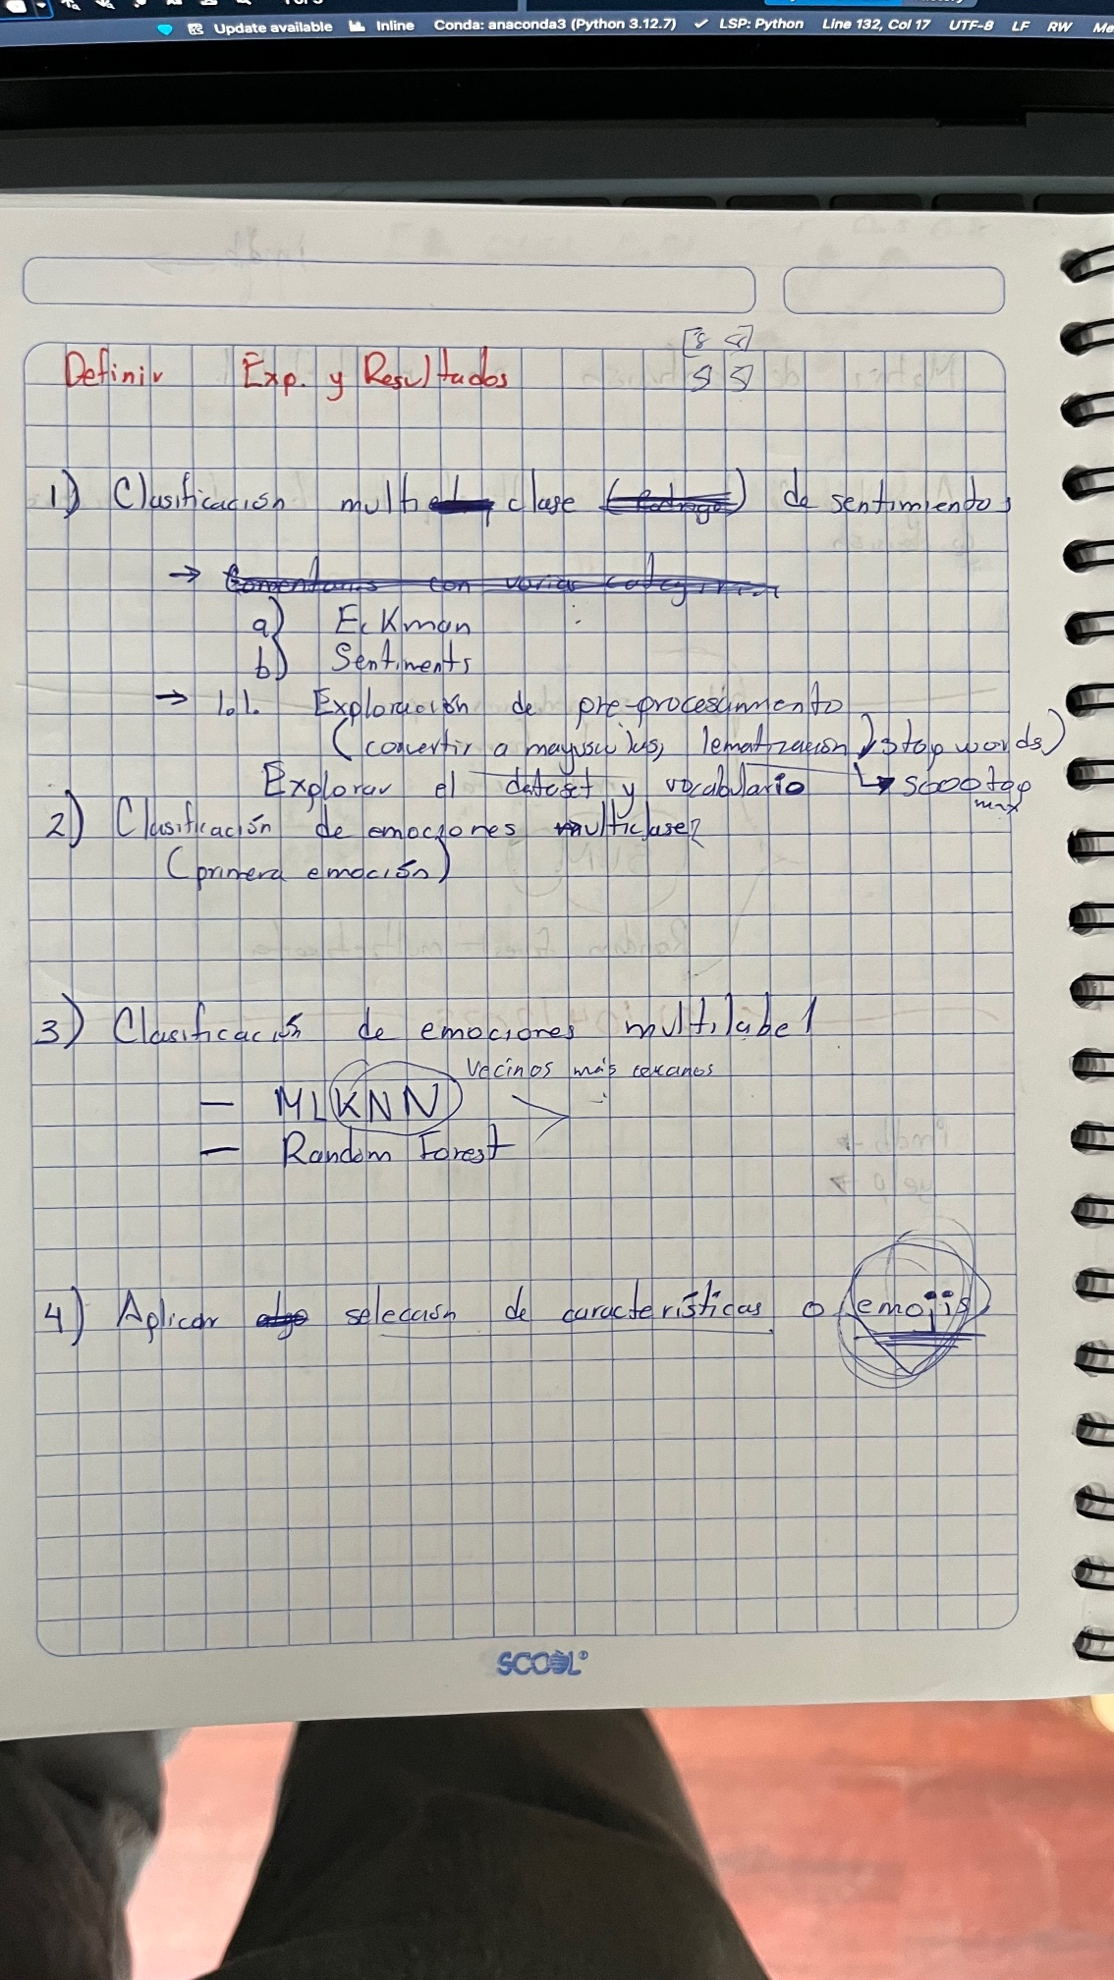 Update available Inline Conda: anaconda3 (Python 3.12.7) ✓ LSP: Python Line 132, Col 17 UTF-8 LF RW Me
Definir Exp. y Resultados
1) Clasificación multi clase de sentimientos
→ Comentarios con varias categorías
a) Eckman
b) Sentiments
→ 1.1. Exploración de pre-procesamiento
(convertir a mayusculas, lematización, stop words)
Explorar el dataset y vocabulario ↳ 5000 top
max
2) Clasificación de emociones multiclase?
(primera emoción)
3) Clasificación de emociones multilabel
Vecinos más cercanos
— MLKNN
— Random Forest
4) Aplicar algo selección de características o emojis
SCOOL